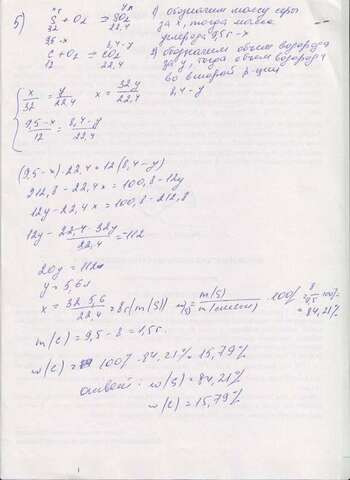 5) xг yл
S + O₂ = SO₂
32 22,4
9,5-x 8,4-y
C + O₂ = CO₂
12 22,4
1) обозначим массу серы
за x, тогда масса
углерода 9,5г-x
2) обозначим объем
за y, тогда объем
во второй р-ции
8,4-y
x/32 = y/22,4 x = 32y/22,4
9,5-x/12 = 8,4-y/22,4
(9,5-x)·22,4 = 12(8,4-y)
212,8-22,4x = 100,8-12y
12y-22,4x = 100,8-212,8
12y - 22,4·32y/22,4 = 112
20y = 112
y = 5,6л
x = 32·5,6/22,4 = 8г(m(S)) m(S)/m(смеси) ·100% 8/9,5 ·100%
= 84,21%
m(C) = 9,5 - 8 = 1,5г.
w(C) = 100% - 84,21% = 15,79%
ответ: w(S) = 84,21%
w(C) = 15,79%